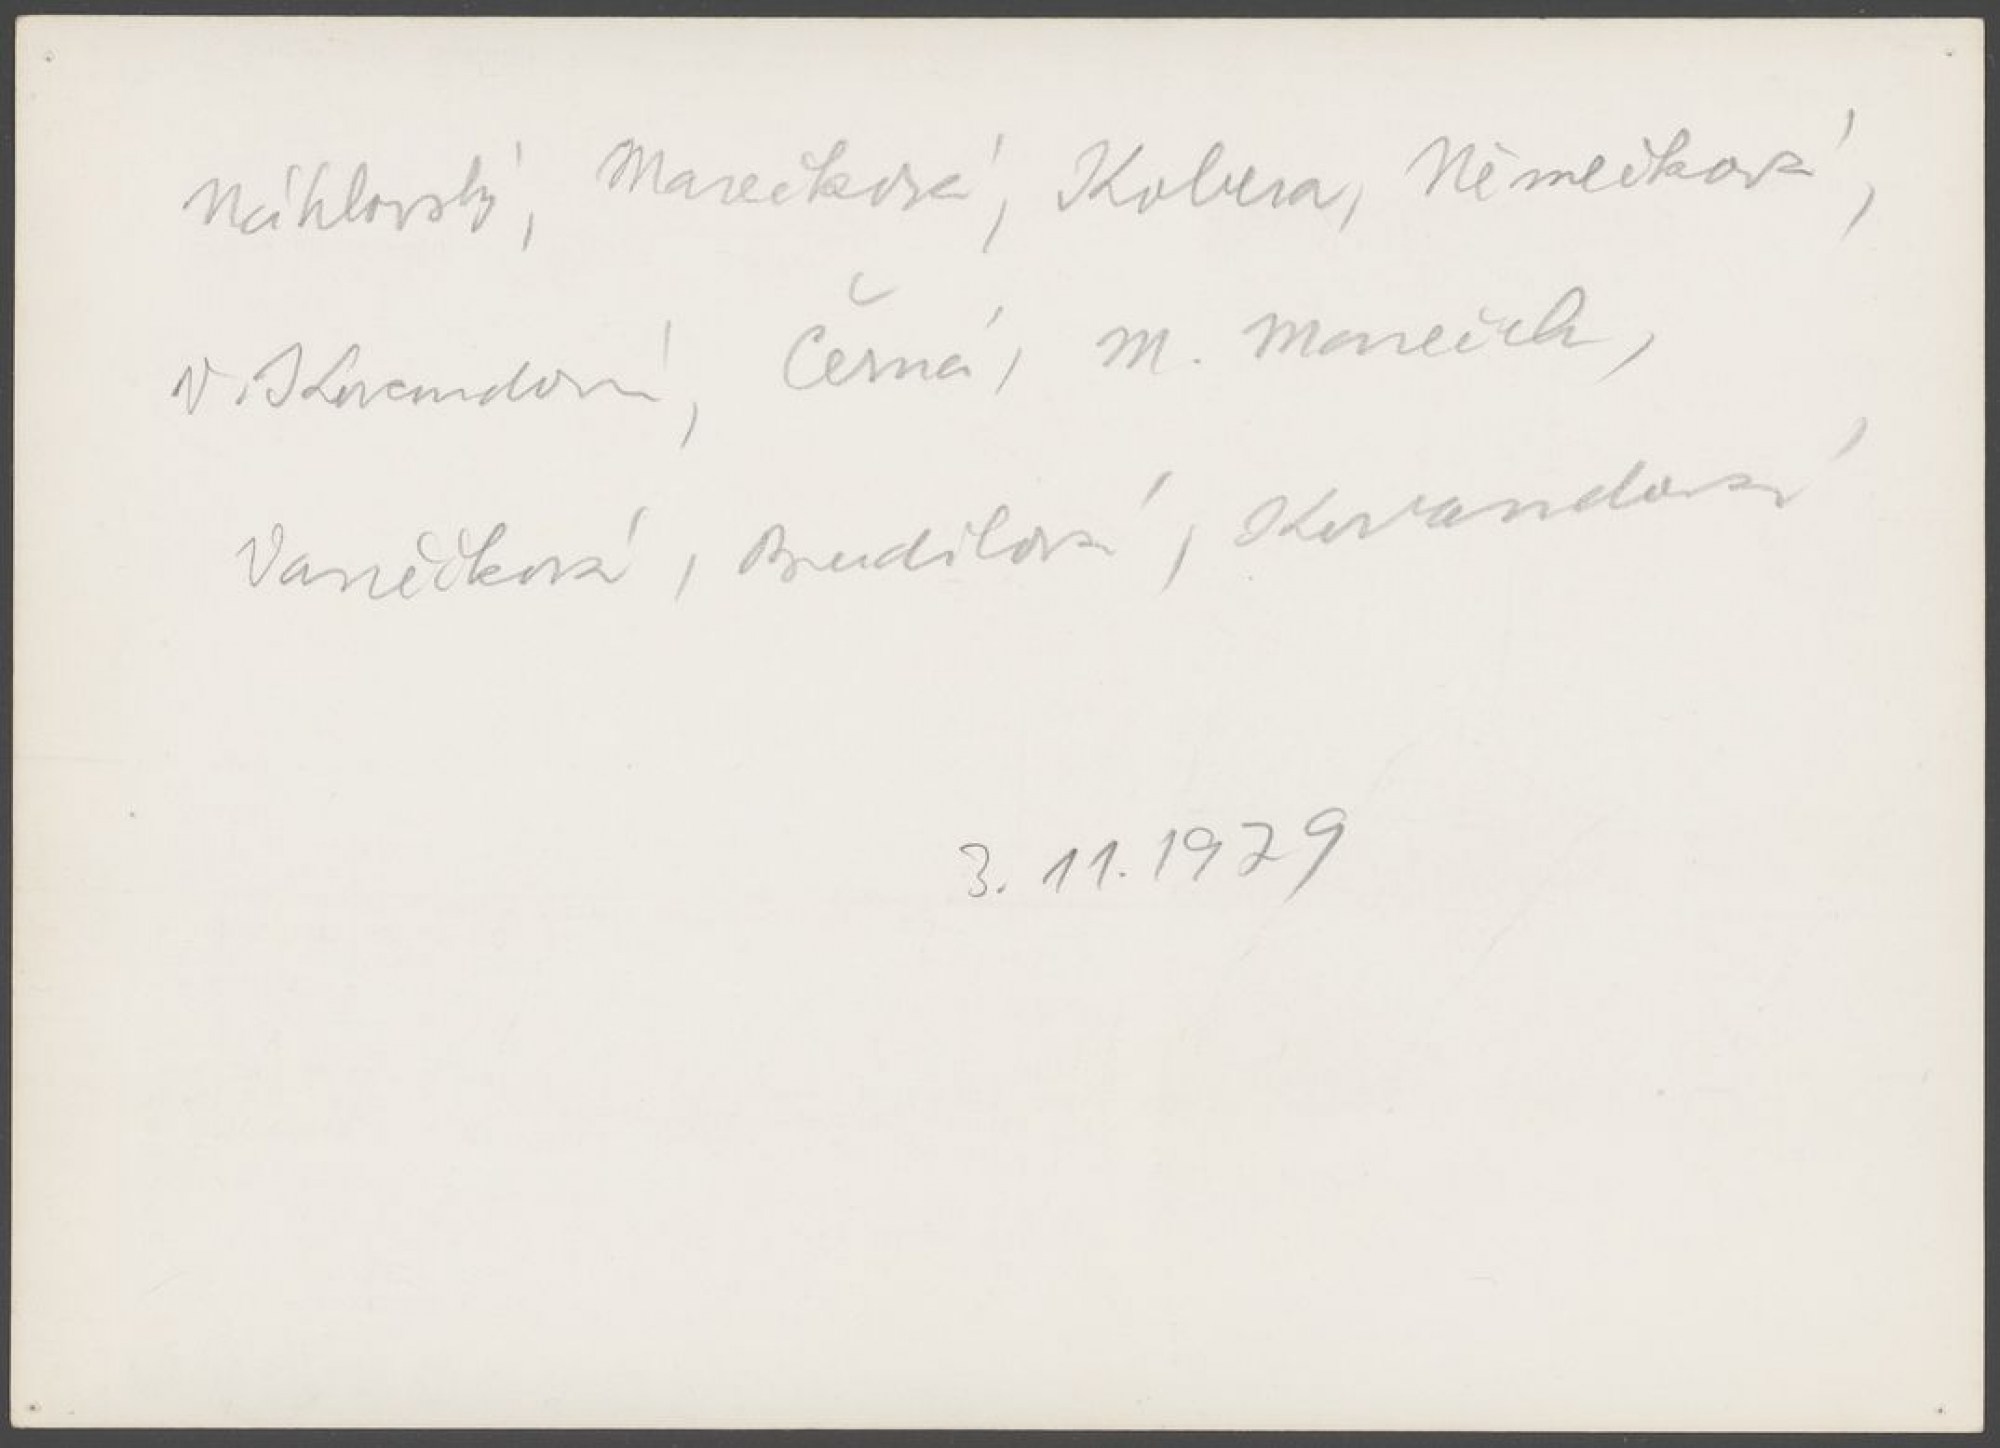 Náhlovský, Marečková, Kobera, Němečková,
V. Kovandová, Černá, M. Mareček,
Vaněčková, Budilová, Kovandová
3. 11. 1979